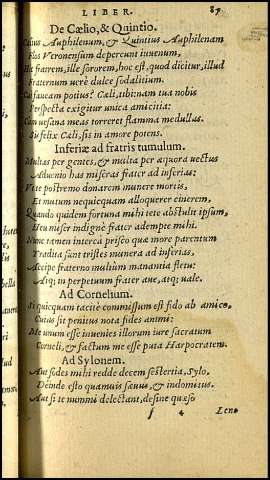 LIBER. 87
De Cælio, & Quintio.
Cælius Auphilenum, & Quintius Auphilenam
Flos Veronensum depereunt iuuenum,
Hic fratrem, ille sororem, hoc est, quod dicitur, illud
Fraternum verè dulce sodalitium.
Cui faueam potius? Cæli, tibi: nam tua nobis
Perspecta exigitur unica amicitia:
Cum vesana meas torreret flamma medullas.
Sis felix Cæli, sis in amore potens.
Inferiæ ad fratris tumulum.
Multas per gentes, & multa per æquora uectus
Aduenio has miseras frater ad inferias:
Vt te postremo donarem munere mortis,
Et mutum nequicquam alloquerer cinerem,
Quando quidem fortuna mihi tete abstulit ipsum,
Heu miser indignè frater adempte mihi.
Nunc tamen interea prisco quæ more parentum
Tradita sunt tristes munera ad inferias,
Accipe fraterno multum manantia fletu:
Atq; in perpetuum frater aue, atq; uale.
Ad Cornelium.
Si quicquam tacitè commissum est fido ab amico,
Cuius sit penitus nota fides animi:
Me unum esse inuenies illorum iure sacratum
Corneli, & factum me esse puta Harpocratem.
Ad Sylonem.
Aut sodes mihi redde decem sestertia, Sylo,
Deinde esto quamuis sæuus, & indomitus.
Aut si te nummi delectant, desine quæso
f 4 Leno